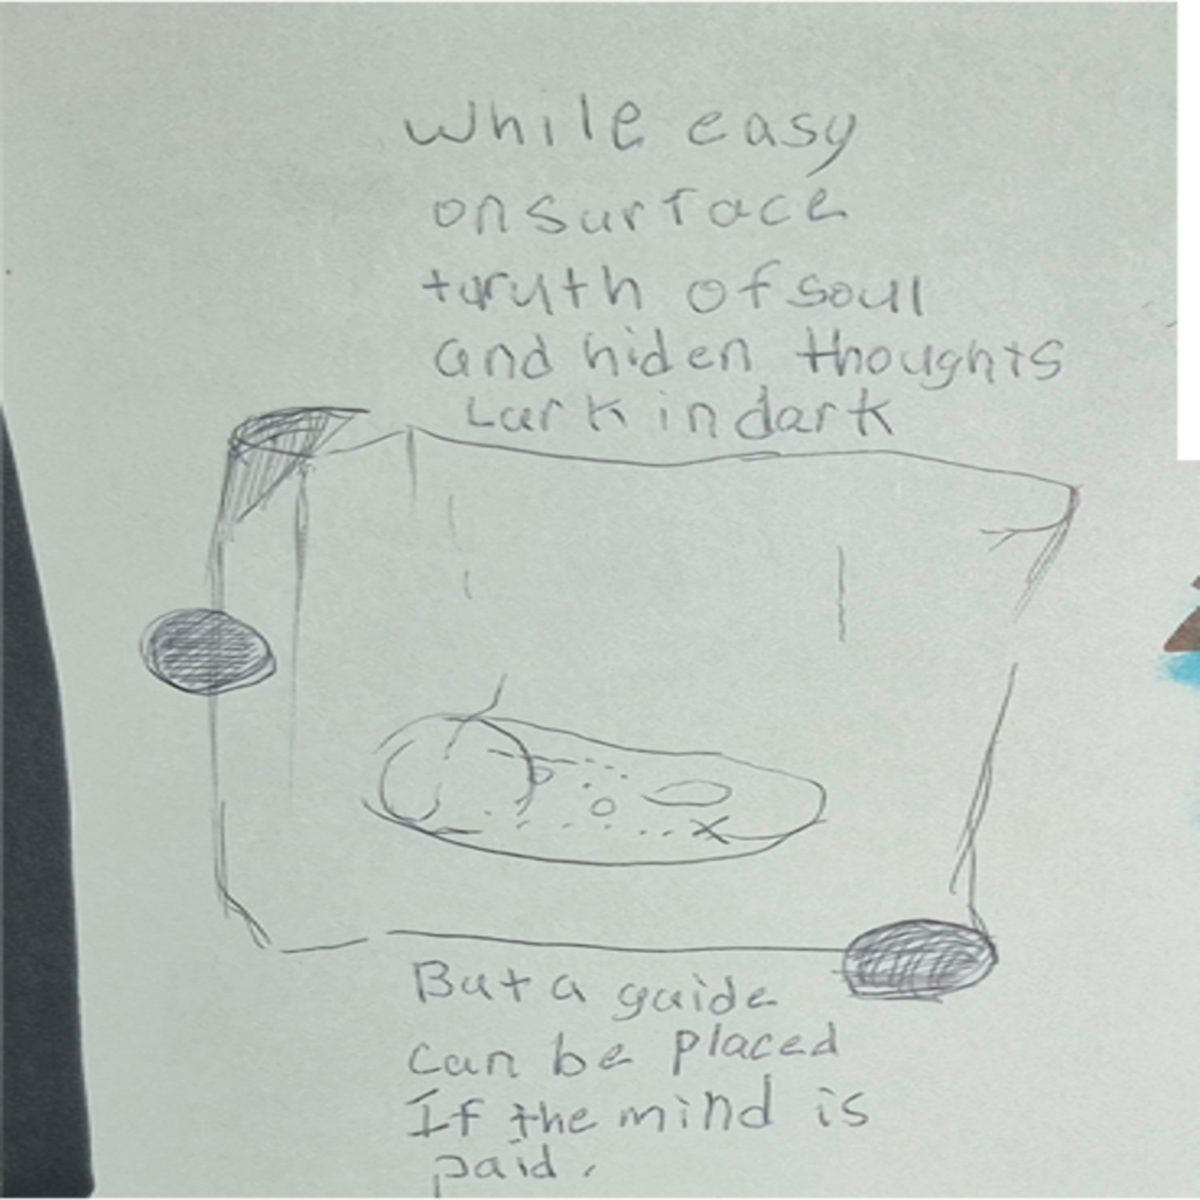 While easy
on surface
truth of soul
and hiden thoughts
Lurk in dark
But a guide
can be placed
If the mind is
paid.